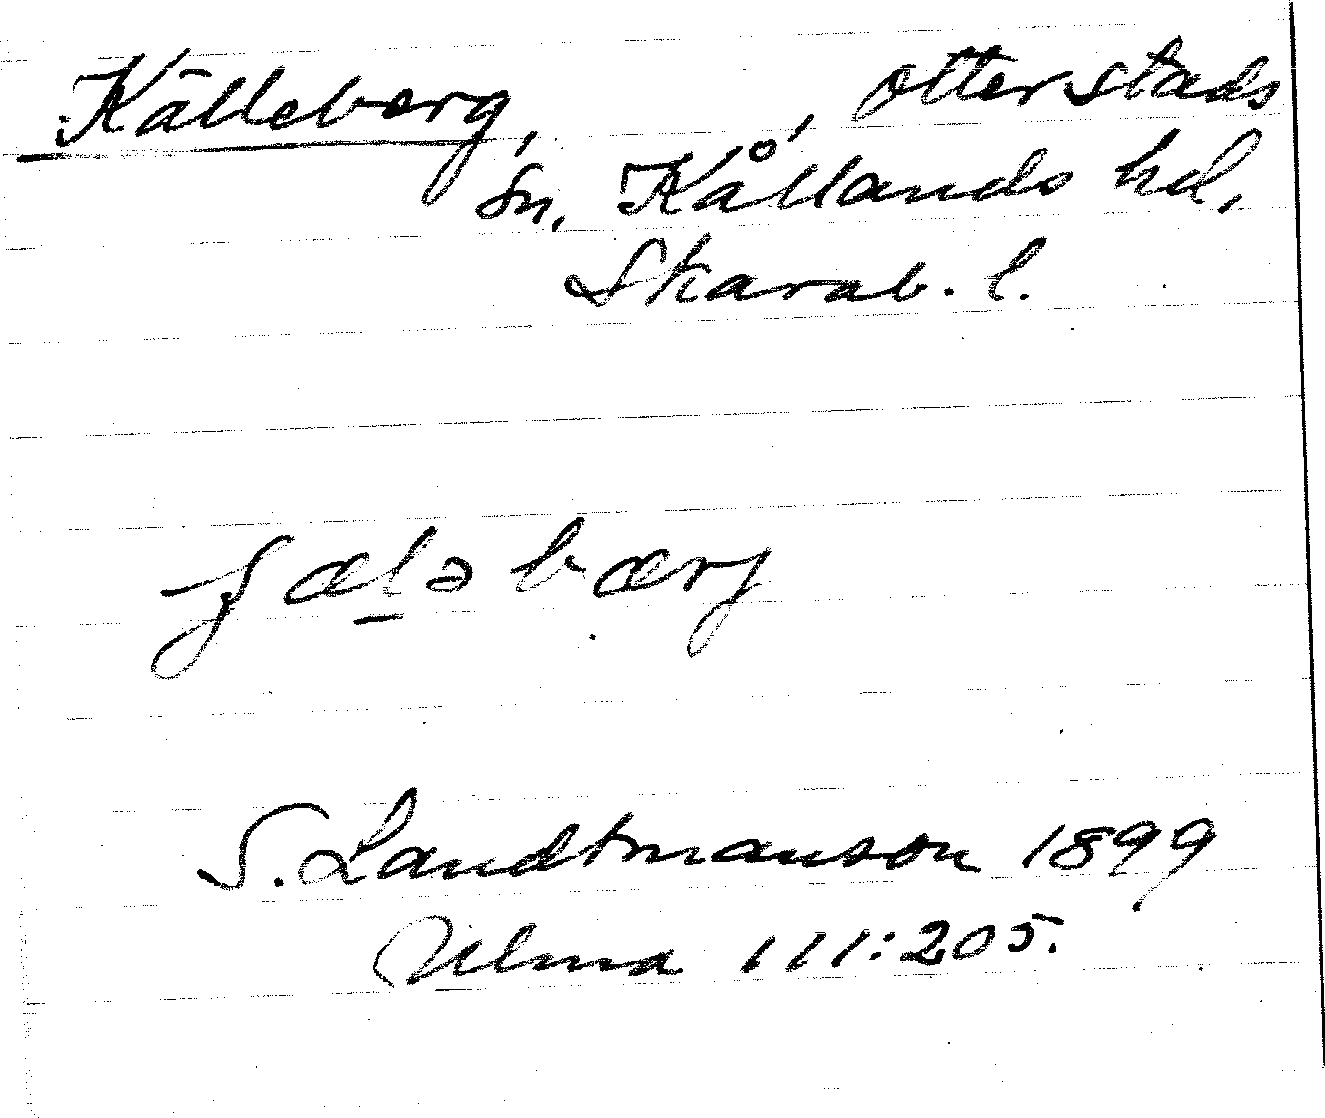 Källeberg, Otterstads
sn, Kållands hd,
Skarab. l.
ʃæləbærj
S. Landtmanson 1899
Ulma 111:205.